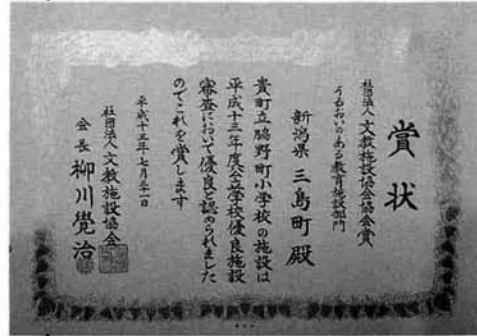 賞状
社団法人 文教施設協会協会賞
うるおいのある教育施設部門
新潟県 三島町殿
貴町立脇野町小学校の施設は
平成十三年度公立学校優良施設
審査において優良と認められました
のでこれを賞します
平成十三年七月三十一日
社団法人文教施設協会
会長 柳川覺治